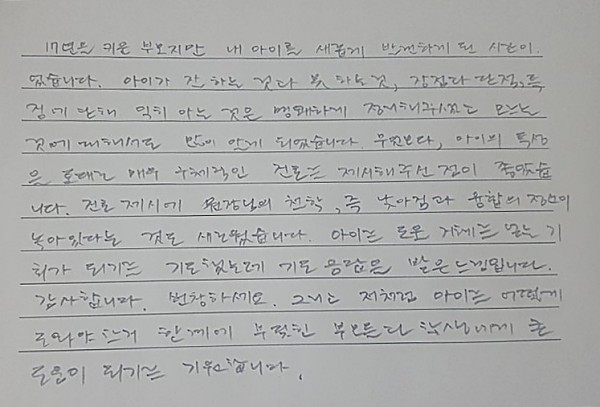 17년을 키운 부모지만 내 아이를 새롭게 발견하게 된 시간이
었습니다. 아이가 잘 하는 것과 못 하는 것, 강점과 단점, 특
징에 대해 익히 아는 것은 명쾌하게 정리해주셨고 모르는
것에 대해서도 많이 알게 되었습니다. 무엇보다, 아이의 특성
을 토대로 매우 구체적인 진로를 제시해주신 점이 좋았습
니다. 진로 제시에 원장님의 철학, 즉 낮아짐과 융합의 정신이
녹아있다는 것도 새로웠습니다. 아이를 도울 거체를 만날 기
회가 되기를 기도했는데 기도 응답을 받은 느낌입니다.
감사합니다. 번창하세요. 그리고 저처럼 아이를 어떻게
도와야 할지 한계에 부딪힌 부모들과 학생에게 큰
도움이 되기를 기원합니다.